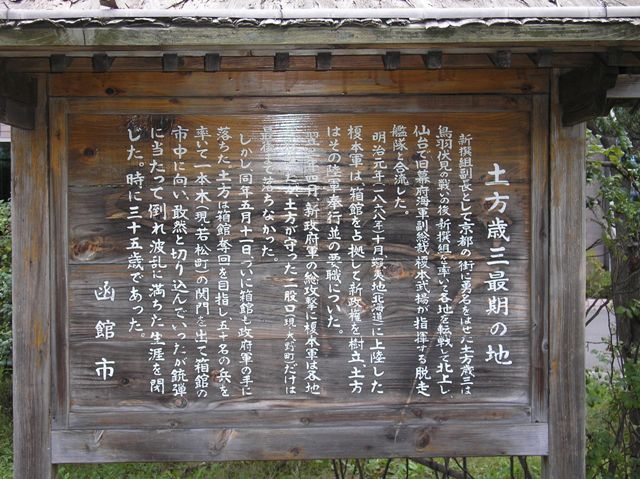 土方歳三最期の地
新撰組副長として京都の街に勇名をはせた土方歳三は
鳥羽伏見の戦いの後、新撰組を率い各地を転戦して北上し、
仙台で旧幕府海軍副総裁榎本武揚が指揮する脱走
艦隊と合流した。
明治元年(一八六八年)十月蝦夷地(北海道)に上陸した
榎本軍は、箱館を占拠して新政権を樹立、土方
はその陸軍奉行並の要職についた。
翌二年四月、新政府軍の総攻撃に榎本軍は各地
土方が守った二股口(現・大野町)だけは
最後まで落ちなかった。
しかし、同年五月十一日ついに箱館も政府軍の手に
落ちた。土方は箱館奪回を目指し、五十名の兵を
率いて一本木(現若松町)の関門を出て箱館の
市中に向い、敢然と切り込んでいったが、銃弾
に当たって倒れ波乱に満ちた生涯を閉
じた。時に三十五歳であった。
函館市